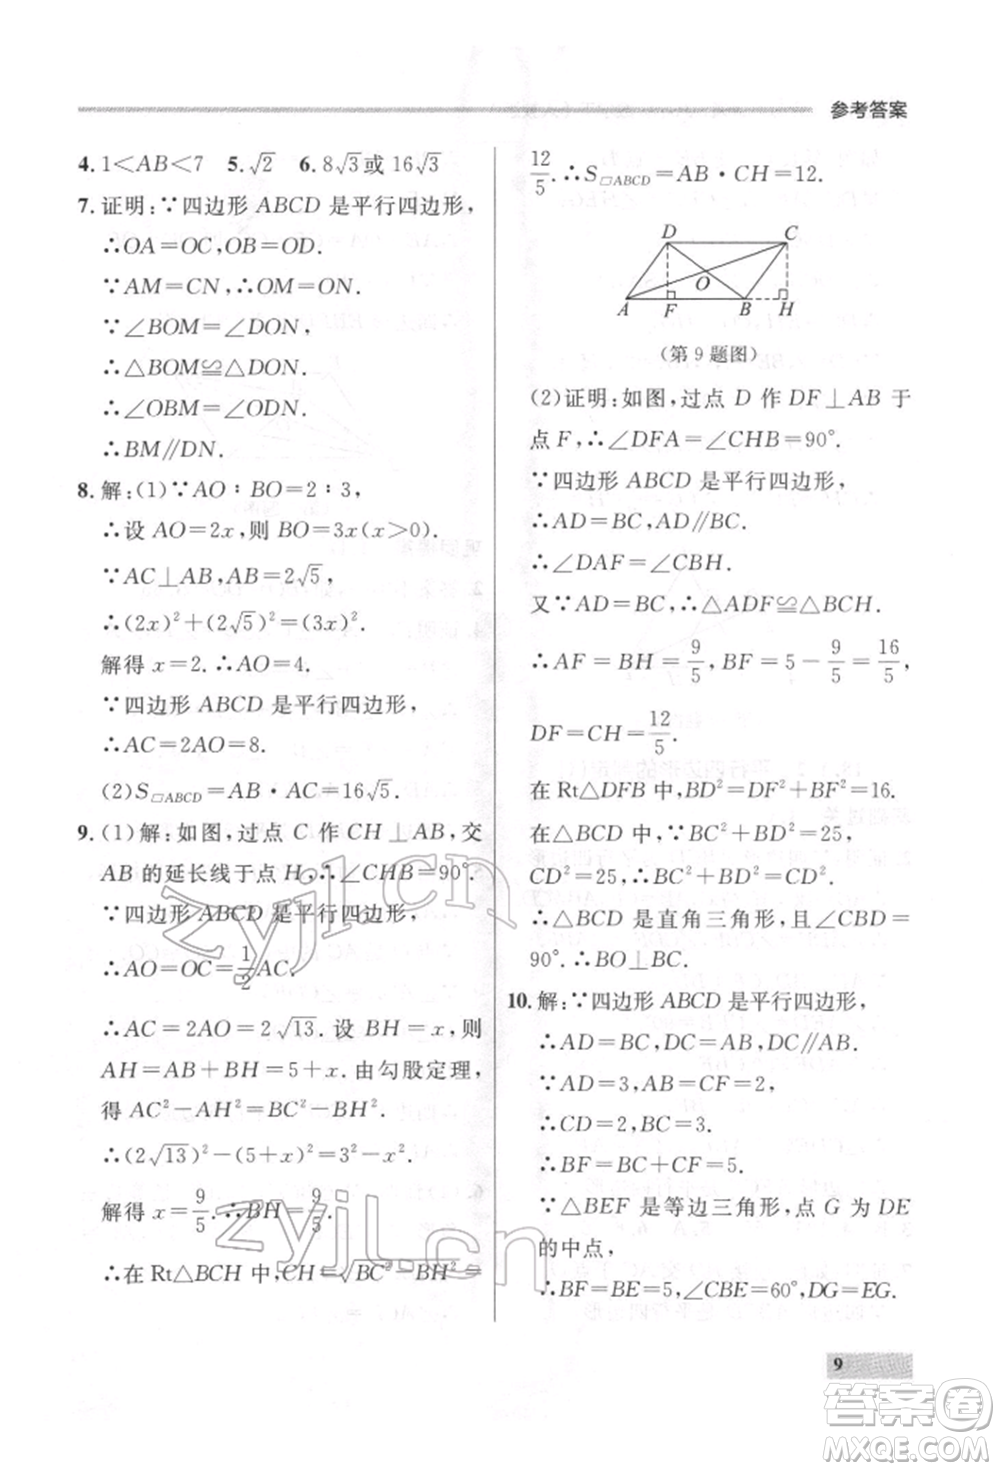 参考答案
4. 1＜AB＜7 5. √2 6. 8√3或16√3
7. 证明：∵四边形ABCD是平行四边形，
∴OA=OC，OB=OD.
∵AM=CN，∴OM=ON.
∵∠BOM=∠DON，
∴△BOM≌△DON.
∴∠OBM=∠ODN.
∴BM∥DN.
8. 解：(1)∵AO∶BO=2∶3，
∴设AO=2x，则BO=3x(x>0).
∵AC⊥AB，AB=2√5，
∴(2x)²+(2√5)²=(3x)².
解得x=2.∴AO=4.
∵四边形ABCD是平行四边形，
∴AC=2AO=8.
(2)S▱ABCD=AB·AC=16√5.
9. (1)解：如图，过点C作CH⊥AB，交
AB的延长线于点H，∴∠CHB=90°.
∵四边形ABCD是平行四边形，
∴AO=OC=1/2AC.
∴AC=2AO=2√13. 设BH=x，则
AH=AB+BH=5+x. 由勾股定理，
得AC²-AH²=BC²-BH².
∴(2√13)²-(5+x)²=3²-x².
解得x=9/5.∴BH=9/5.
∴在Rt△BCH中，CH=√(BC²-BH²)=
12/5.∴S▱ABCD=AB·CH=12.
D C
O
A F B H
(第9题图)
(2)证明：如图，过点D作DF⊥AB于
点F，∴∠DFA=∠CHB=90°.
∵四边形ABCD是平行四边形，
∴AD=BC，AD∥BC.
∴∠DAF=∠CBH.
又∵AD=BC，∴△ADF≌△BCH.
∴AF=BH=9/5，BF=5-9/5=16/5，
DF=CH=12/5.
在Rt△DFB中，BD²=DF²+BF²=16.
在△BCD中，∵BC²+BD²=25，
CD²=25，∴BC²+BD²=CD².
∴△BCD是直角三角形，且∠CBD=
90°.∴BO⊥BC.
10. 解：∵四边形ABCD是平行四边形，
∴AD=BC，DC=AB，DC∥AB.
∵AD=3，AB=CF=2，
∴CD=2，BC=3.
∴BF=BC+CF=5.
∵△BEF是等边三角形，点G为DE
的中点，
∴BF=BE=5，∠CBE=60°，DG=EG.
9
zyjl.cn
zyjl.cn
答案圈
MXQE.COM